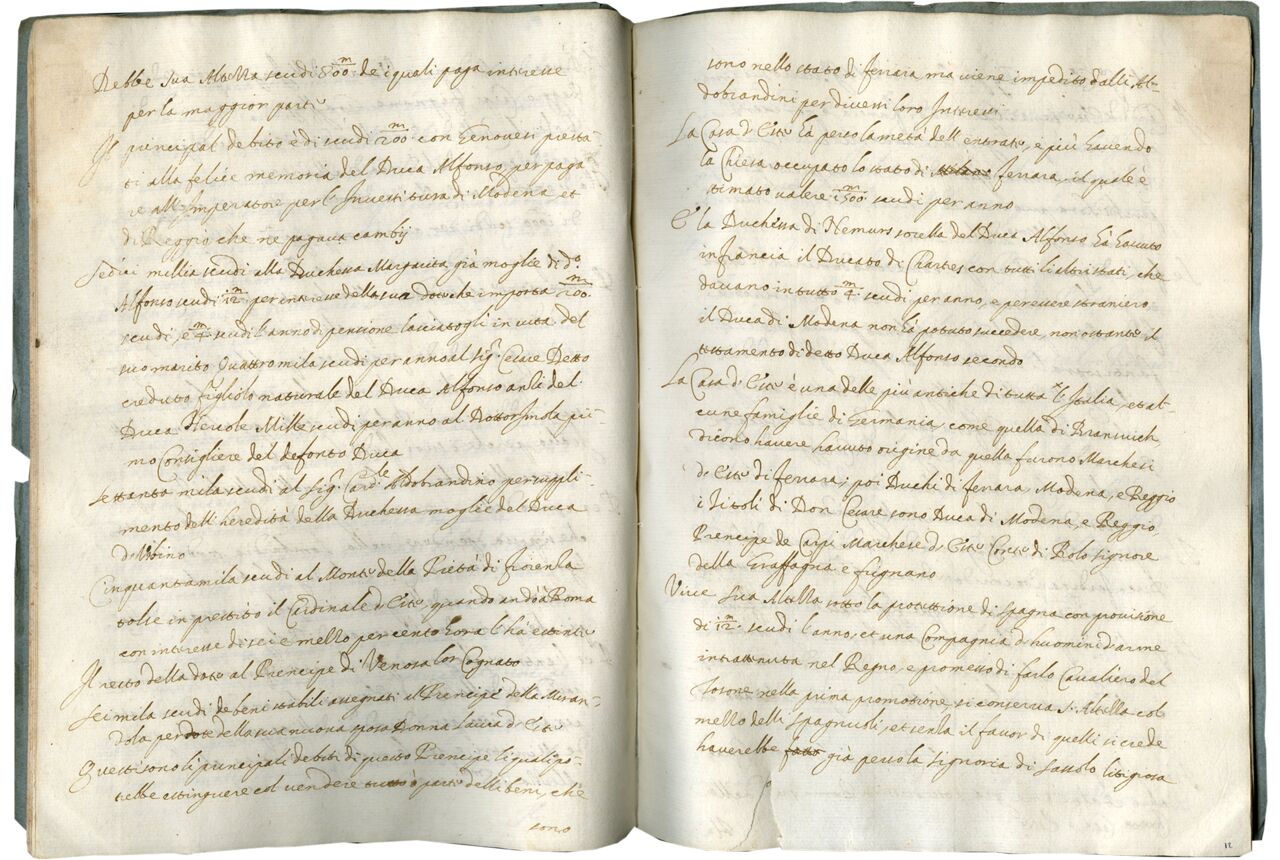 Debbe sua Altezza scudi 800.m de i quali paga interesse
per la maggior parte
Il principal debito è di scudi 200.m con Genovesi presta-
ti alla felice memoria del Duca Alfonso, per paga
re all'Imperatore per l'Investitura di Modena, et
di Reggio che ne pagava cambij
Sedici millia scudi alla Duchessa Margarita già moglie di do.
Alfonso scudi 12.m per interesse della sua dote che importa 200.m
scudi, e 4.m scudi l'anno di pensione lasciatogli in vita del
suo marito Quattro mila scudi per anno al sig.r Cesare Detto
creduto figliolo naturale del Duca Alfonso anzi del
Duca Hercole Mille scudi per anno al Dottor Imola pri-
mo Consigliere del defonto Duca
Settanta mila scudi al sig.r Card.le Aldobrandino per suppli-
mento dell'heredità della Duchessa moglie del Duca
d'Urbino
Cinquanta mila scudi al Monte della Pietà di Fiorenza
tolse in prestito il Cardinale d'Este, quando andò à Roma
con interesse di sei e mezzo per cento hora l'hà estinto
Il resto della dote al Principe di Venosa lor Cognato
Sei mila scudi de beni stabili assegnati al Principe della Miran-
dola per dote della sua nuova sposa Donna Laura d'Este
Questi sono li principali debiti di questo Principe li quali po-
trebbe estinguere col vendere tutto ò parte delli beni, che
sono
sono nello stato di ferrara ma viene impedito dalli Al-
dobrandini per diversi loro Interessi
La Casa d'Este hà perso la metà dell'entrate, e più havendo
la Chiesa occupato lo stato di ferrara, il quale è
stimato valere 1500.m scudi per anno
E' la Duchessa di Nemurs sorella del Duca Alfonso hà havuto
in francia il Ducato di Chartes con tutti li altri stati, che
davano in tutto 4.m scudi per anno, e per essere straniero
il Duca di Modena non hà potuto succedere, non ostante il
testamento di detto Duca Alfonso secondo
La Casa d'Este è una delle più antiche di tutta l'Italia, et al-
cune famiglie di Germania, come quella di Bransvich,
dicono havere havuto origine da quella furono Marchesi
d'Este di ferrara; poi Duchi di ferrara, Modena, e Reggio
i Titoli di Don Cesare sono Duca di Modena, e Reggio,
Principe de Carpi Marchese d'Este Conte di Rolo signore
della Graffagna e frignano
Vive sua Altezza sotto la protettione di Spagna con provisione
di 12.m scudi l'anno, et una Compagnia d'huomini d'arme
intrattenuta nel Regno, e promesso di farlo Cavaliero del
Tosone nella prima promotione, si conserva S. Altezza col
mezzo delli Spagnuoli, et senza il favor di quelli si crede
haverebbe fatto già perso la signoria di Sassolo litigiosa
12